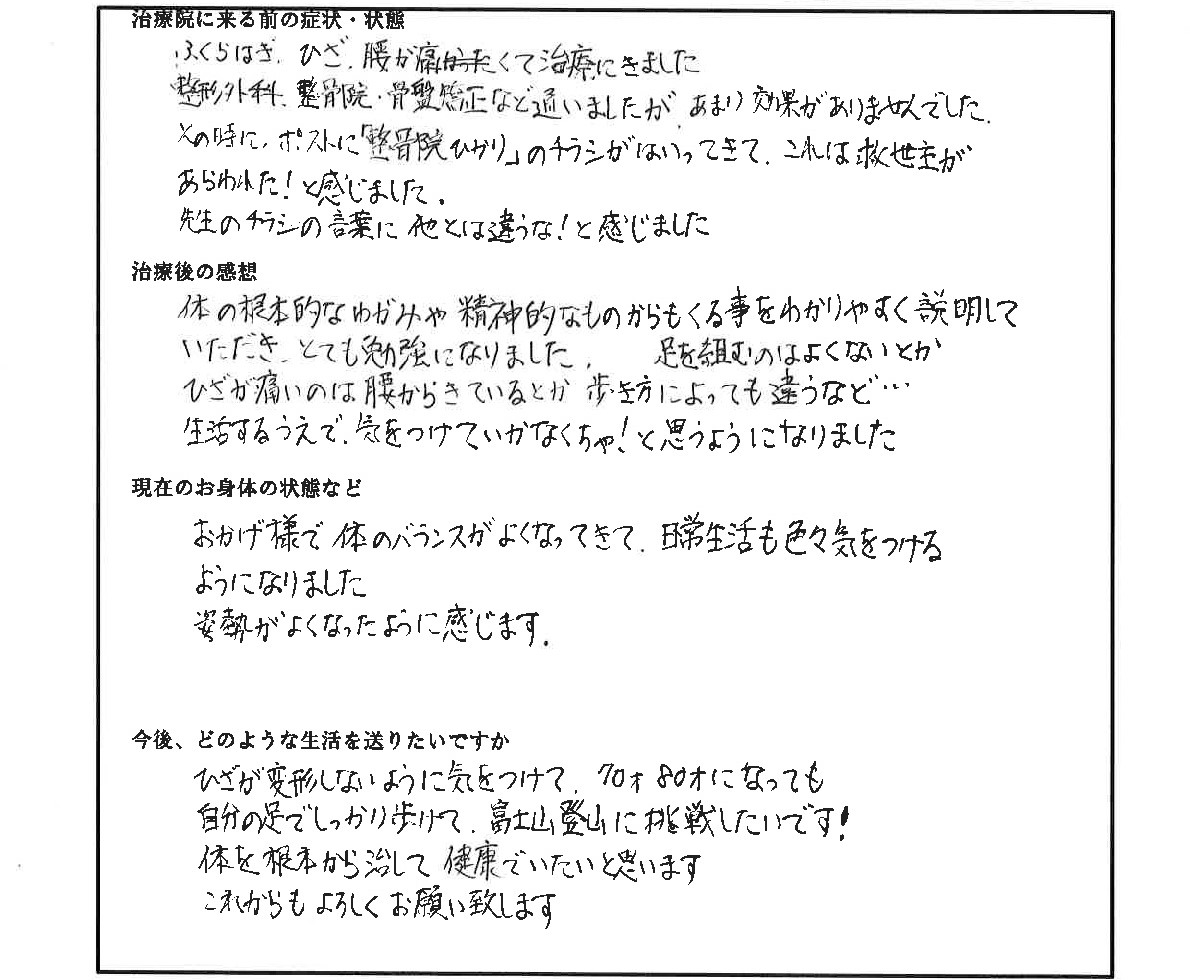 治療院に来る前の症状・状態
ふくらはぎ、ひざ、腰が痛くて治療にきました
整形外科、整骨院・骨盤矯正など通いましたが、あまり効果がありませんでした。
その時に、ポストに「整骨院ひかり」のチラシがはいってきて、これは救世主が
あらわれた!と感じました。
先生のチラシの言葉に他とは違うな!と感じました
治療後の感想
体の根本的なゆがみや精神的なものからもくる事をわかりやすく説明して
いただき、とても勉強になりました。 足を組むのはよくないとか
ひざが痛いのは腰からきているとか 歩き方によっても違うなど…
生活するうえで、気をつけていかなくちゃ!と思うようになりました
現在のお身体の状態など
おかげ様で体のバランスがよくなってきて、日常生活も色々気をつける
ようになりました
姿勢がよくなったように感じます。
今後、どのような生活を送りたいですか
ひざが変形しないように気をつけて、70才80才になっても
自分の足でしっかり歩けて、富士山登山に挑戦したいです!
体を根本から治して健康でいたいと思います
これからもよろしくお願い致します